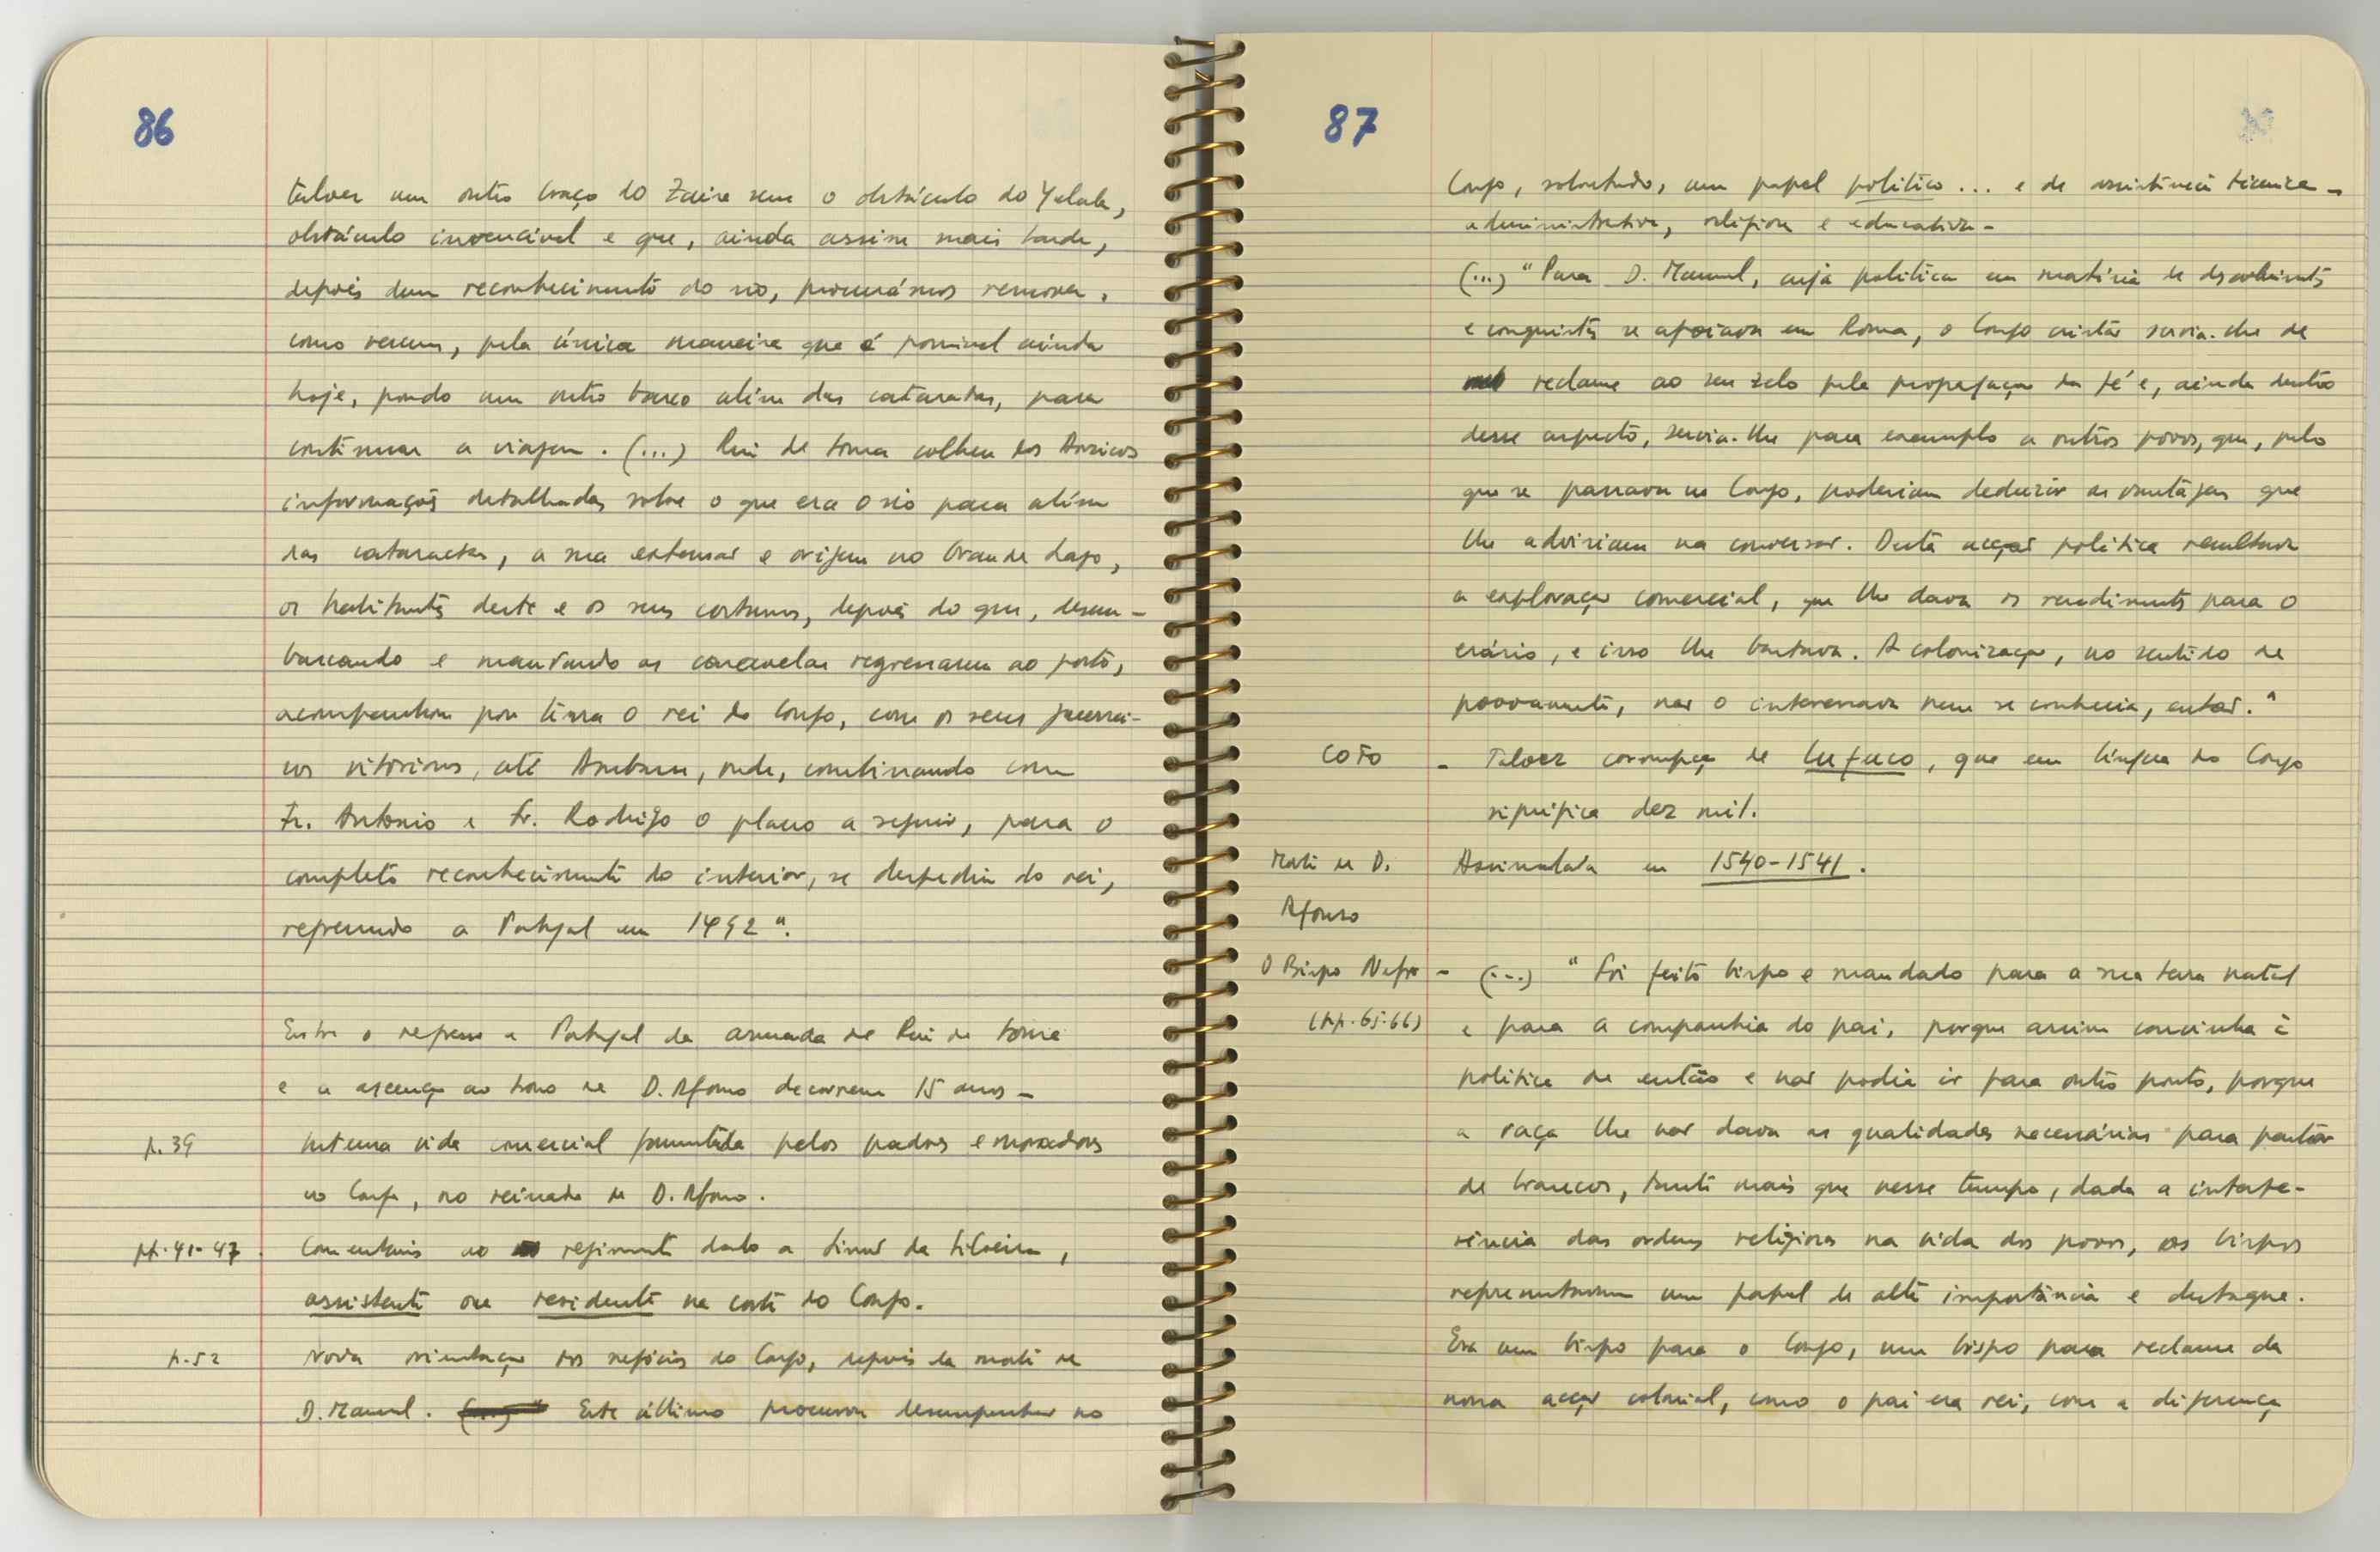 86
talvez um outro braço do Zaire sem o obstáculo do Yelala,
obstáculo invencível e que, ainda assim mais tarde,
depois dum reconhecimento do rio, procurámos remover,
como veremos, pela única maneira que é possível ainda
hoje, pondo um outro barco além das cataratas, para
continuar a viagem. (...) Rui de Sousa colheu dos Anzicos
informações detalhadas sobre o que era o rio para além
das cataractas, a sua extensão e origem no Grande Lago,
os habitantes deste e os seus costumes, depois do que, desem-
barcando e mandando as caravelas regressarem ao porto,
acompanhou por terra o rei do Congo, com os seus guerrei-
ros vitoriosos, até Ambasse, onde, combinando com
Fr. António e Fr. Rodrigo o plano a seguir, para o
completo reconhecimento do interior, se despediu do rei,
regressando a Portugal em 1492".
Entre o regresso a Portugal da armada de Rui de Sousa
e a ascenção ao trono de D. Afonso decorrem 15 anos -
p. 39
Intensa vida comercial fomentada pelos padres e moradores
no Congo, no reinado de D. Afonso.
pp. 41-47.
Comentários ao regimento dado a Simão da Silveira,
assistente ou residente na corte do Congo.
p. 52
Nova orientação dos negócios do Congo, depois da morte de
D. Manuel. Este último procurou desempenhar no
87
Congo, sobretudo, um papel político... e de assistência técnica-
administrativa, religiosa e educativa -
(...) "Para D. Manuel, cuja política em matéria de descobrimentos
e conquistas se apoiava em Roma, o Congo cristão servia-lhe de
reclame ao seu zelo pela propagação da fé e, ainda dentro
desse aspecto, servia-lhe para exemplo a outros povos, que, pelo
que se passava no Congo, poderiam deduzir as vantagens que
lhe adviriam na conversão. Desta acção política resultava
a exploração comercial, que lhe dava os rendimentos para o
erário, e isso lhe bastava. A colonização, no sentido de
povoamento, não o interessava nem se conhecia, então."
COFO
- Talvez corrupção de lufuco, que em língua do Congo
significa dez mil.
Morte de D.
Afonso
Assinalada em 1540-1541.
O Bispo Negro -
(pp. 65-66)
(...) "Foi feito bispo e mandado para a sua terra natal
e para a companhia do pai, porque assim convinha à
política de então e não podia ir para outro ponto, porque
a raça lhe não dava as qualidades necessárias para pastor
de brancos, tanto mais que nesse tempo, dada a interfe-
rência das ordens religiosas na vida dos povos, os bispos
representavam um papel de alta importância e destaque.
Era um bispo para o Congo, um bispo para reclame da
nossa acção colonial, como o pai era rei, com a diferença